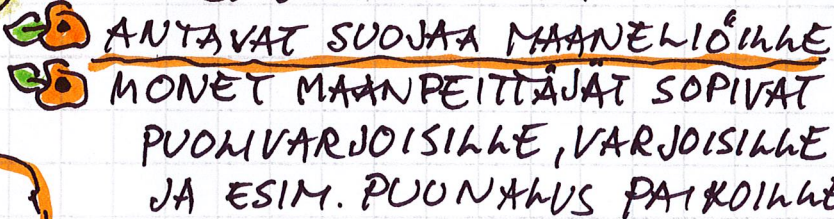 ANTAVAT SUOJAA MAANELIÖILLE
MONET MAANPEITTÄJÄT SOPIVAT
PUOLIVARJOISILLE, VARJOISILLE
JA ESIM. PUUNALUS PAIKOILLE